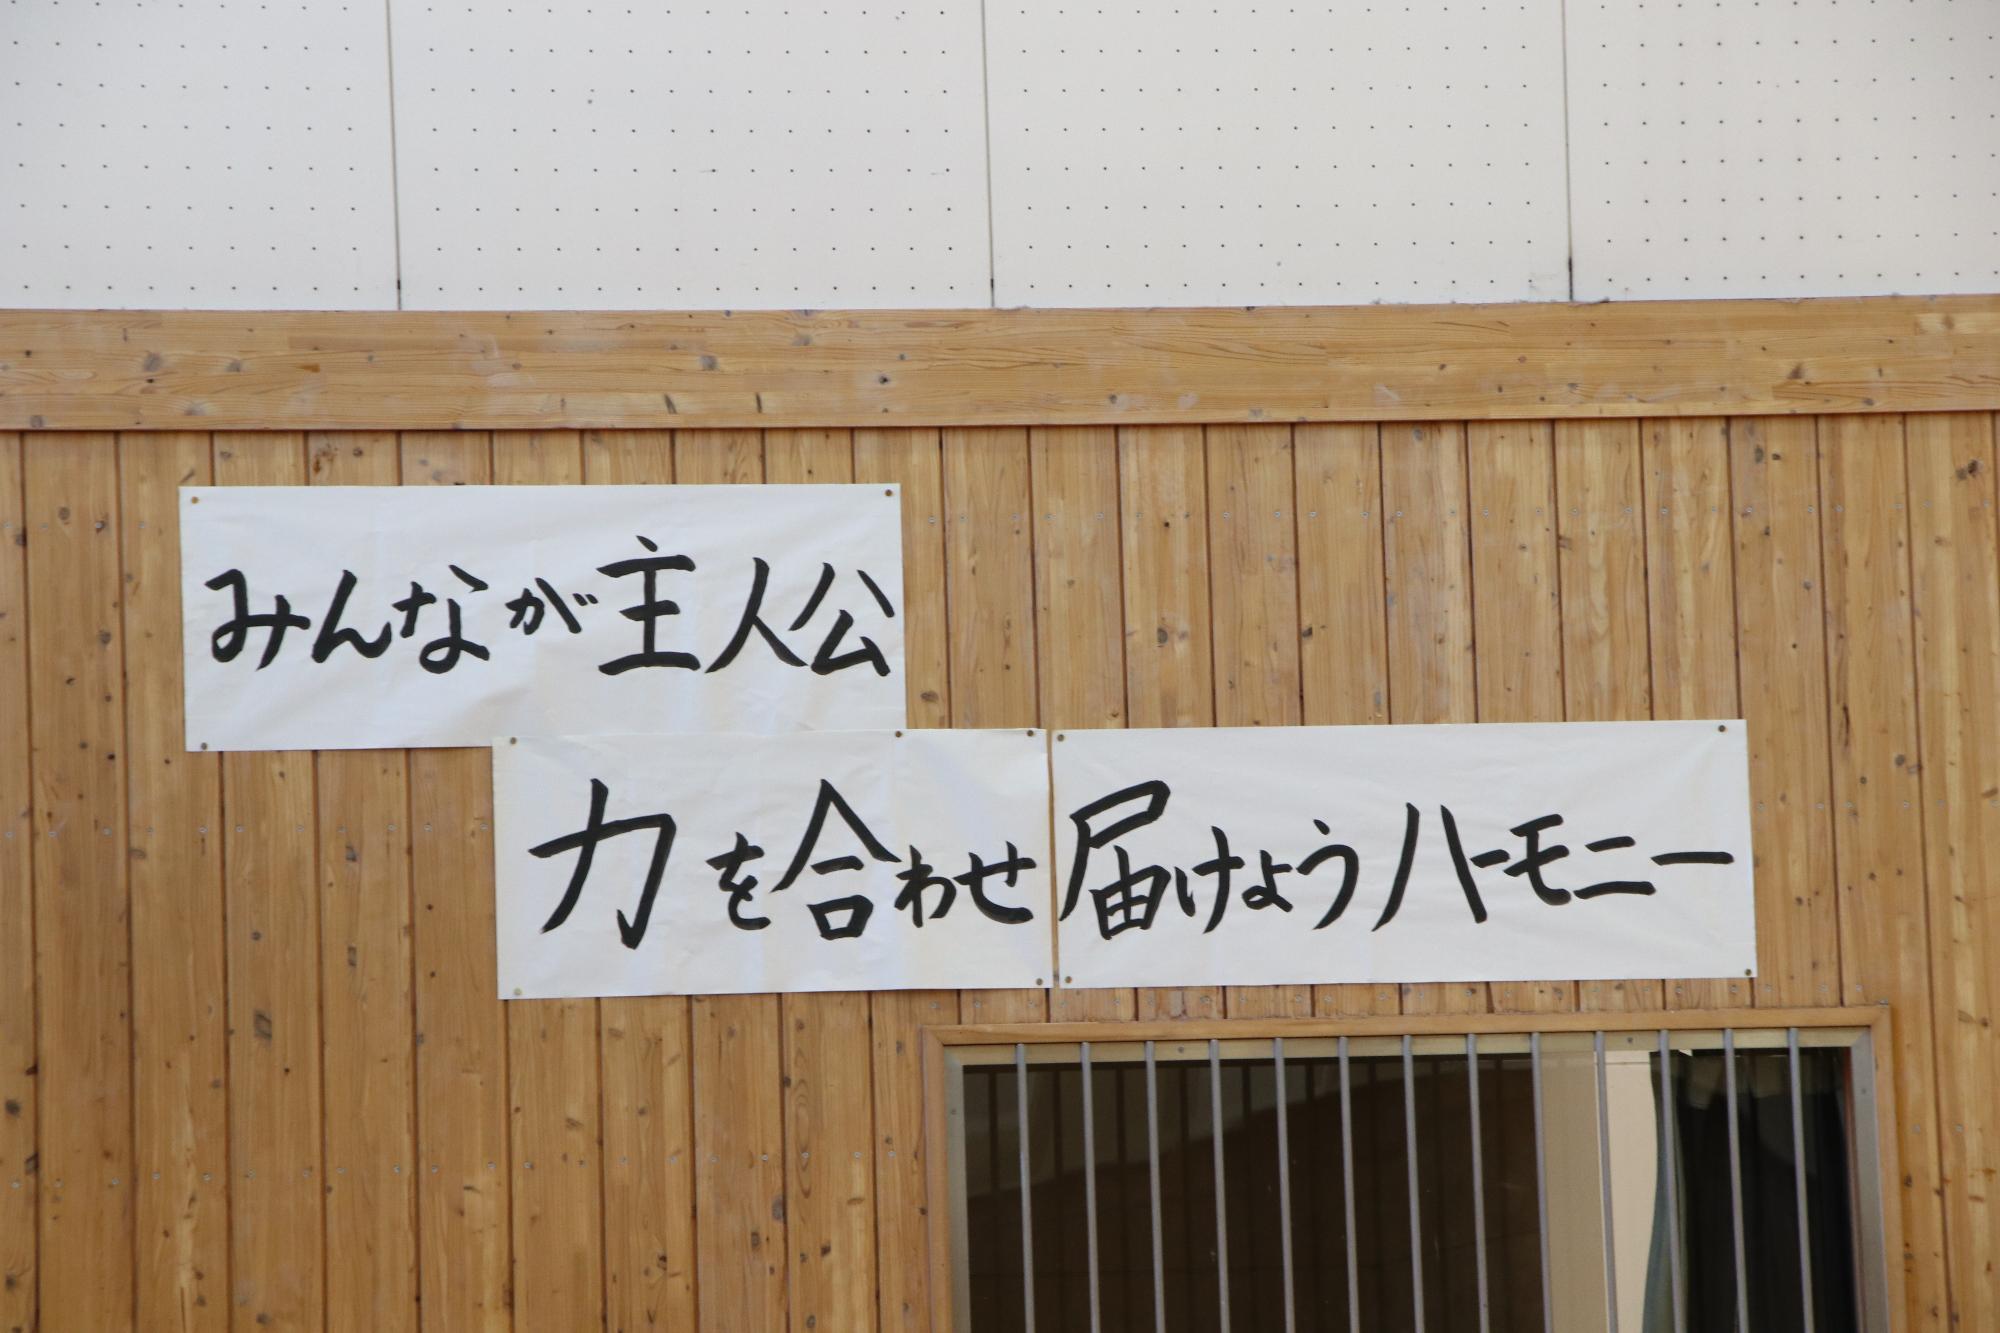 みんなが主人公
力を合わせ届けようハーモニー